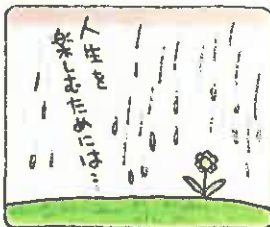 人生を
楽しむためには…